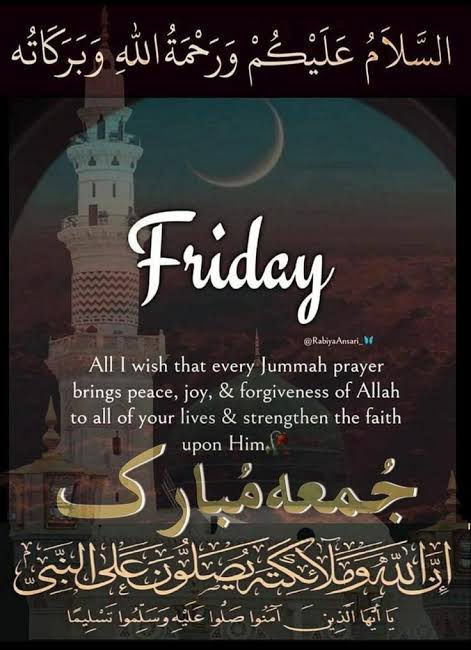 السَّلَامُ عَلَيْكُمْ وَرَحْمَةُ اللهِ وَبَرَكَاتُه
Friday
@RabiyaAnsari_🦋
All I wish that every Jummah prayer
brings peace, joy, & forgiveness of Allah
to all of your lives & strengthen the faith
upon Him.🥀
جُمعه مُبارک
إِنَّ اللهَ وَمَلَائِكَتَهُ يُصَلُّونَ عَلَى النَّبِيِّ
يَا أَيُّهَا الَّذِينَ آمَنُوا صَلُّوا عَلَيْهِ وَسَلِّمُوا تَسْلِيمًا